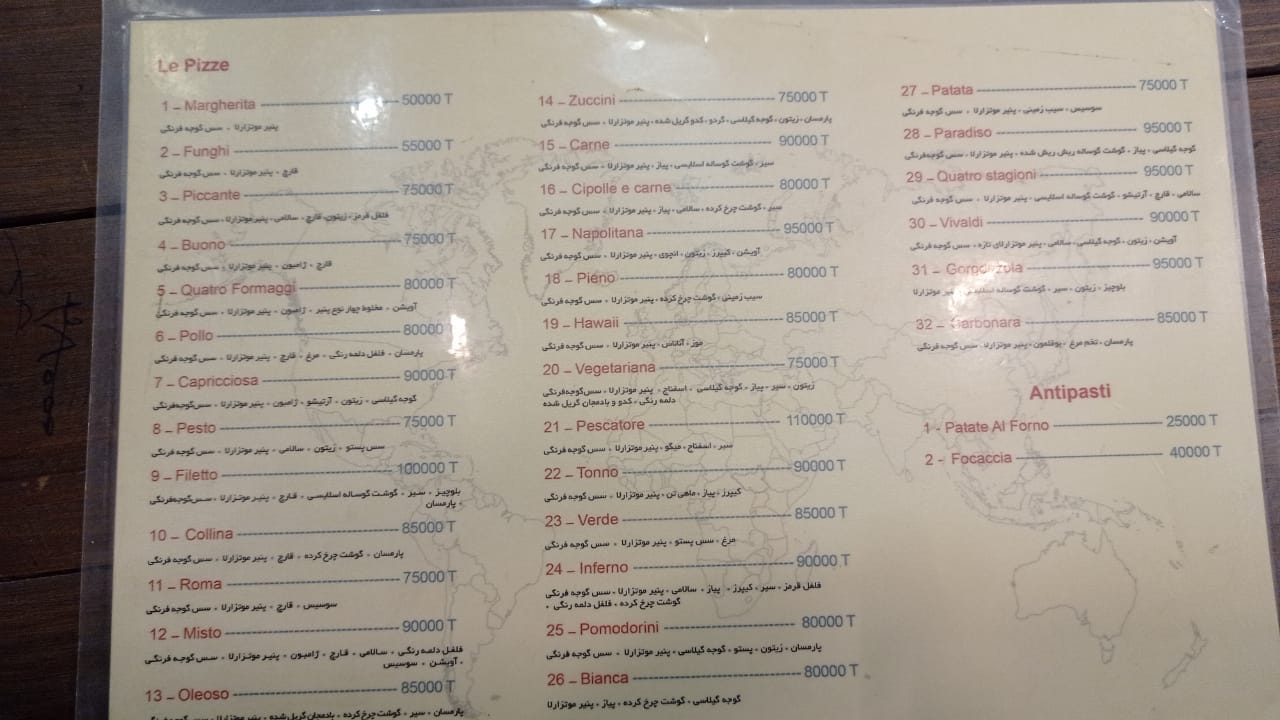 Le Pizze
1 – Margherita 50000 T
پنیر موتزارلا ، سس گوجه فرنگی
2 – Funghi 55000 T
قارچ ، پنیر موتزارلا ، سس گوجه فرنگی
3 – Piccante 75000 T
فلفل قرمز ، زیتون، قارچ ، سالامی ، پنیر موتزارلا ، سس گوجه فرنگی
4 – Buono 75000 T
قارچ ، ژامبون ، پنیر موتزارلا ، سس گوجه فرنگی
5 – Quatro Formaggi 80000 T
آویشن ، مخلوط چهار نوع پنیر ، ژامبون ، پنیر موتزارلا ، سس گوجه فرنگی
6 – Pollo 80000 T
پارمسان ، فلفل دلمه رنگی ، مرغ ، قارچ ، پنیر موتزارلا ، سس گوجه فرنگی
7 – Capricciosa 90000 T
گوجه گیلاسی ، زیتون ، آرتیشو ، ژامبون ، پنیر موتزارلا ، سس گوجه‌فرنگی
8 – Pesto 75000 T
سس پستو ، زیتون ، سالامی ، پنیر موتزارلا ، سس گوجه فرنگی
9 – Filetto 100000 T
بلوچیز ، سیر ، گوشت گوساله اسلایسی ، قارچ ، پنیر موتزارلا ، سس گوجه‌فرنگی
، پارمسان
10 – Collina 85000 T
پارمسان ، گوشت چرخ کرده ، قارچ ، پنیر موتزارلا ، سس گوجه فرنگی
11 – Roma 75000 T
سوسیس ، قارچ ، پنیر موتزارلا ، سس گوجه فرنگی
12 – Misto 90000 T
فلفل دلمه رنگی ، سالامی ، قارچ ، ژامبون ، پنیر موتزارلا ، سس گوجه فرنگی
، آویشن ، سوسیس
13 – Oleoso 85000 T
پارمسان ، سیر ، گوشت چرخ کرده ، بادمجان گریل شده ، پنیر موتزارلا ، سس گوجه فرنگی
14 – Zuccini 75000 T
پارمسان ، زیتون ، گوجه گیلاسی ، گردو ، کدو گریل شده ، پنیر موتزارلا ، سس گوجه فرنگی
15 – Carne 90000 T
سیر ، گوشت گوساله اسلایسی ، پیاز ، پنیر موتزارلا ، سس گوجه فرنگی
16 – Cipolle e carne 80000 T
سیر ، گوشت چرخ کرده ، سالامی ، پیاز ، پنیر موتزارلا ، سس گوجه فرنگی
17 – Napolitana 95000 T
آویشن ، کیپرز ، زیتون ، آنچوی ، پنیر موتزارلا ، سس گوجه فرنگی
18 – Pieno 80000 T
سیب زمینی ، گوشت چرخ کرده ، پنیر موتزارلا ، سس گوجه فرنگی
19 – Hawaii 85000 T
موز ، آناناس ، پنیر موتزارلا ، سس گوجه فرنگی
20 – Vegetariana 75000 T
زیتون ، سیر ، پیاز ، گوجه گیلاسی ، اسفناج ، پنیر موتزارلا ، سس گوجه‌فرنگی
دلمه رنگی ، کدو و بادمجان گریل شده
21 – Pescatore 110000 T
سیر ، اسفناج ، میگو ، پنیر موتزارلا ، سس گوجه فرنگی
22 – Tonno 90000 T
کیپرز ، پیاز ، ماهی تن ، پنیر موتزارلا ، سس گوجه فرنگی
23 – Verde 85000 T
مرغ ، سس پستو ، پنیر موتزارلا ، سس گوجه فرنگی
24 – Inferno 90000 T
فلفل قرمز ، سیر ، کیپرز ، پیاز ، سالامی ، پنیر موتزارلا ، سس گوجه فرنگی
گوشت چرخ کرده ، فلفل دلمه رنگی ،
25 – Pomodorini 80000 T
پارمسان ، زیتون ، پستو ، گوجه گیلاسی ، پنیر موتزارلا ، سس گوجه فرنگی
26 – Bianca 80000 T
گوجه گیلاسی ، گوشت چرخ کرده ، پیاز ، پنیر موتزارلا
27 – Patata 75000 T
سوسیس ، سیب زمینی ، پنیر موتزارلا ، سس گوجه فرنگی
28 – Paradiso 95000 T
گوجه گیلاسی ، پیاز ، گوشت گوساله ریش ریش شده ، پنیر موتزارلا ، سس گوجه‌فرنگی
29 – Quatro stagioni 95000 T
سالامی ، قارچ ، آرتیشو ، گوشت گوساله اسلایسی ، پنیر موتزارلا ، سس گوجه فرنگی
30 – Vivaldi 90000 T
آویشن ، زیتون ، گوجه گیلاسی ، سالامی ، پنیر موتزارلای تازه ، سس گوجه فرنگی
31 – Gorgonzola 95000 T
بلوچیز ، زیتون ، سیر ، گوشت گوساله اسلایسی ، پنیر موتزارلا
32 – Carbonara 85000 T
پارمسان ، تخم مرغ ، بوقلمون ، پنیر موتزارلا ، سس گوجه فرنگی
Antipasti
1 - Patate Al Forno 25000 T
2 - Focaccia 40000 T